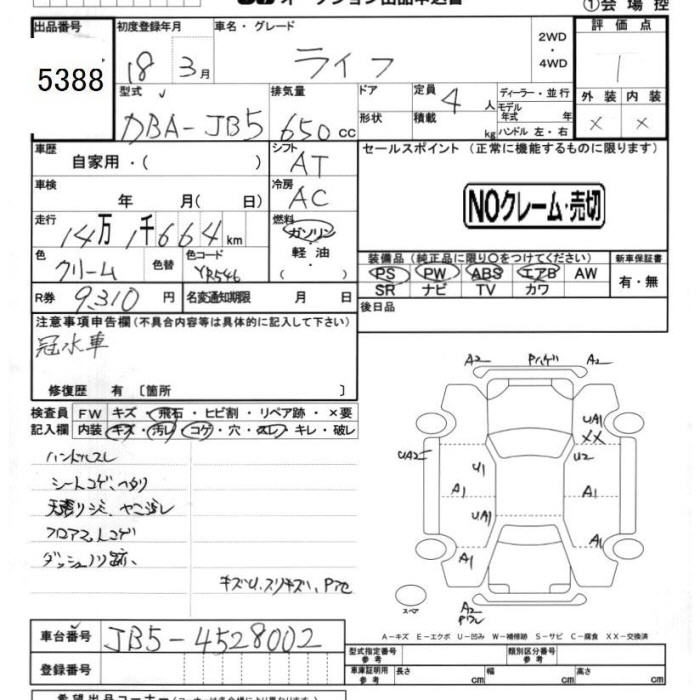 オークション出品申込書
①会場控
出品番号 初度登録年月 車名・グレード 2WD ・ 4WD 評価点
5388 18 3月 ライフ 1
型式 排気量 ドア 定員 4人 ディーラー・並行 外装 内装
DBA-JB5 650cc 形状 積載 kg モデル年式 年 × ×
ハンドル 左・右
車歴 シフト セールスポイント（正常に機能するものに限ります）
自家用・（ ） AT
車検 冷房 NOクレーム・売切
年 月（ 日） AC
走行 燃料
14万1千664km ガソリン・軽油・（ ）
色 色替 色コード 装備品（純正品に限り○をつけてください） 新車保証書
クリーム YR546 PS PW ABS エアB AW 有・無
SR ナビ TV カワ
R券 9,310円 名変通知期限 月 日 後日品
注意事項申告欄（不具合内容等は具体的に記入して下さい）
冠水車
修復歴 有〔箇所 〕
検査員 FW キズ・飛石・ヒビ割・リペア跡・×要
記入欄 内装 キズ・汚レ・コゲ・穴・スレ・キレ・破レ
ハンドルスレ
シートコゲ、ヘタリ
天張リジミ、ヤニ汚レ
フロアマットコゲ
ダッシュノリ跡、
キズU、スリキズハ、Pアセ
A2 Pハゲ A2
UA1
XX
UA2 U1 U2
A1 A1
UA1
A1 A1
スペア A2
Pワレ
A－キズ E－エクボ U－凹み W－補修跡 S－サビ C－腐食 XX－交換済
車台番号 JB5-4528002 型式指定番号 参考 類別区分番号 参考
登録番号 車庫証明用 参考 長さ cm 幅 cm 高さ cm
希望出品コーナー